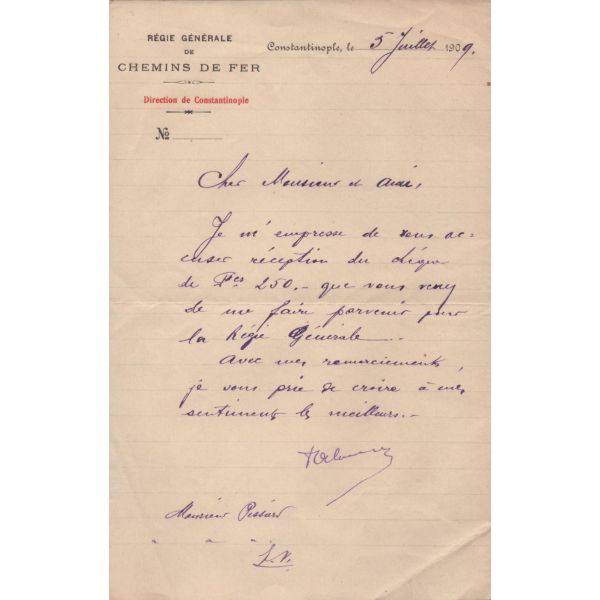 RÉGIE GÉNÉRALE
DE
CHEMINS DE FER
Direction de Constantinople
№
Constantinople, le 5 Juillet 1909.
Cher Monsieur et ami,
Je m'empresse de vous ac=
cuser réception du chèque
de Fcs 250.- que vous venez
de me faire parvenir pour
la Régie Générale.
Avec mes remerciements,
je vous prie de croire à mes
sentiments les meilleurs.-
Monsieur Pissard
" " "
E.V.